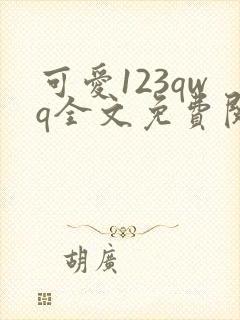 可愛123qw
q全文免費閱
胡廣